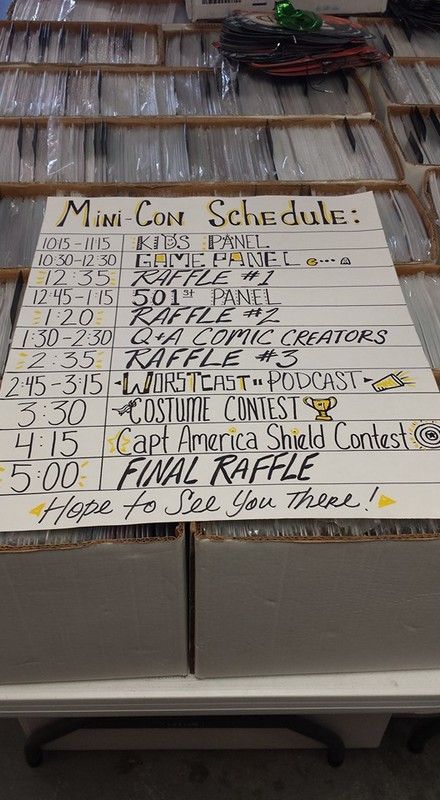 MINI-CON SCHEDULE:
1015-1115 KIDS PANEL
10:30-12:30 GAME PANEL
12:35 RAFFLE #1
12:45-1:15 501st PANEL
1:20 RAFFLE #2
1:30-2:30 Q+A COMIC CREATORS
2:35 RAFFLE #3
2:45-3:15 "WORSTCAST" PODCAST
3:30 COSTUME CONTEST
4:15 Capt America Shield Contest
5:00 FINAL RAFFLE
Hope to See You There!